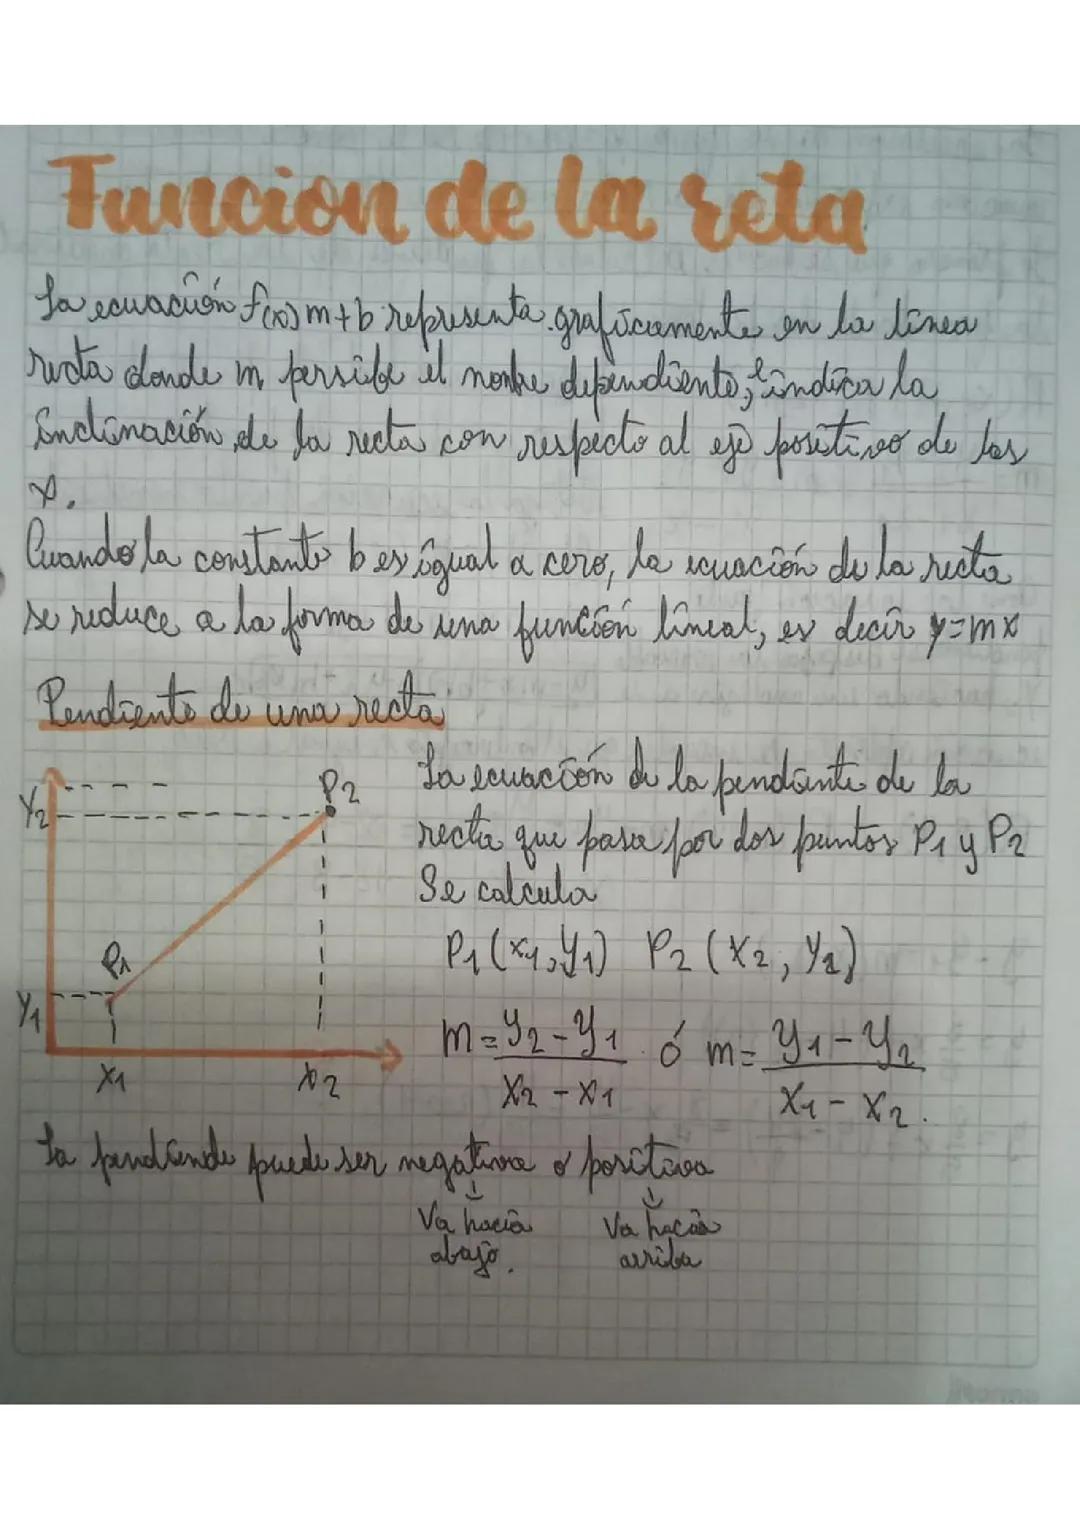 Funcion de la reta
La ecuación f(x) m+b representa graficamente en la linea
recta donde m persibe el nombre dependiente, e indica la
inclinación de la recta con respecto al eje positivo de las
x.
Cuando la constante b es igual a cero, la ecuación de la recta
se reduce a la forma de una función lineal, es decir y=mx
Pendiente de una recta
Y2
P2
P1
Y1
X1
x2
La ecuación de la pendiente de la
recta que pasa por dos puntos P1 y P2
Se calcula
P1 (x1, y1) P2 (x2, y2)
m = y2 - y1 / x2 - x1 ó m = y1 - y2 / x1 - x2.
La pendiende puede ser negativa o positiva
Va hacia
abajo.
Va hacia
arriba